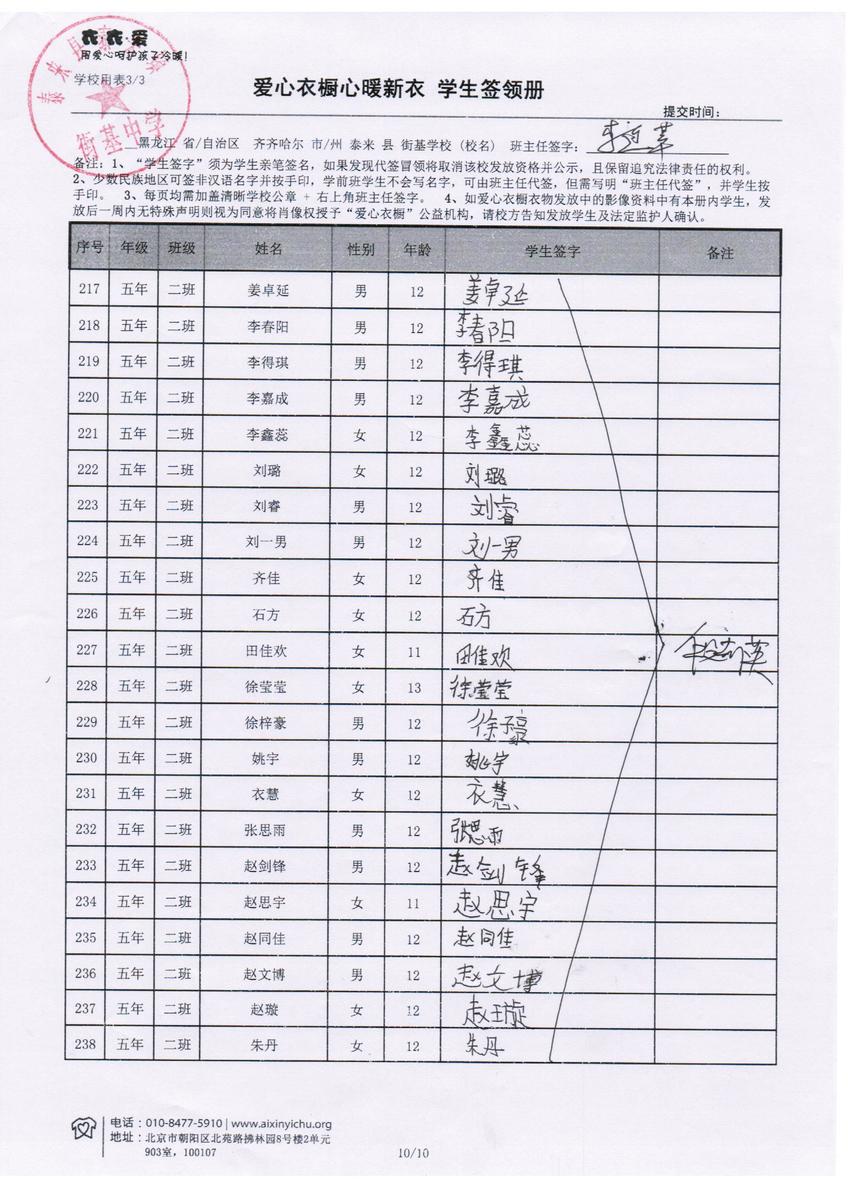 衣·衣·爱
用爱心呵护孩子冷暖!
学校用表3/3
街基中学
爱心衣橱心暖新衣 学生签领册
提交时间:
黑龙江 省/自治区 齐齐哈尔 市/州 泰来 县 街基学校 (校名) 班主任签字:
备注:1、“学生签字”须为学生亲笔签名,如果发现代签冒领将取消该校发放资格并公示,且保留追究法律责任的权利。
2、少数民族地区可签非汉语名字并按手印,学前班学生不会写名字,可由班主任代签,但需写明“班主任代签”,并学生按
手印。 3、每页均需加盖清晰学校公章 + 右上角班主任签字。 4、如爱心衣橱衣物发放中的影像资料中有本册内学生,发
放后一周内无特殊声明则视为同意将肖像权授予“爱心衣橱”公益机构,请校方告知发放学生及法定监护人确认。
序号 年级 班级 姓名 性别 年龄 学生签字 备注
217 五年 二班 姜卓延 男 12 姜卓延
218 五年 二班 李春阳 男 12 李春阳
219 五年 二班 李得琪 男 12 李得琪
220 五年 二班 李嘉成 男 12 李嘉成
221 五年 二班 李鑫蕊 女 12 李鑫蕊
222 五年 二班 刘璐 女 12 刘璐
223 五年 二班 刘睿 男 12 刘睿
224 五年 二班 刘一男 男 12 刘一男
225 五年 二班 齐佳 女 12 齐佳
226 五年 二班 石方 女 12 石方
227 五年 二班 田佳欢 女 11 田佳欢
228 五年 二班 徐莹莹 女 13 徐莹莹
229 五年 二班 徐梓豪 男 12 徐子豪
230 五年 二班 姚宇 男 12 姚宇
231 五年 二班 衣慧 女 12 衣慧
232 五年 二班 张思雨 男 12 张思雨
233 五年 二班 赵剑锋 男 12 赵剑锋
234 五年 二班 赵思宇 女 11 赵思宇
235 五年 二班 赵同佳 男 12 赵同佳
236 五年 二班 赵文博 男 12 赵文博
237 五年 二班 赵璇 女 12 赵璇
238 五年 二班 朱丹 女 12 朱丹
电话:010-8477-5910 | www.aixinyichu.org
地址:北京市朝阳区北苑路拂林园8号楼2单元
903室,100107
10/10